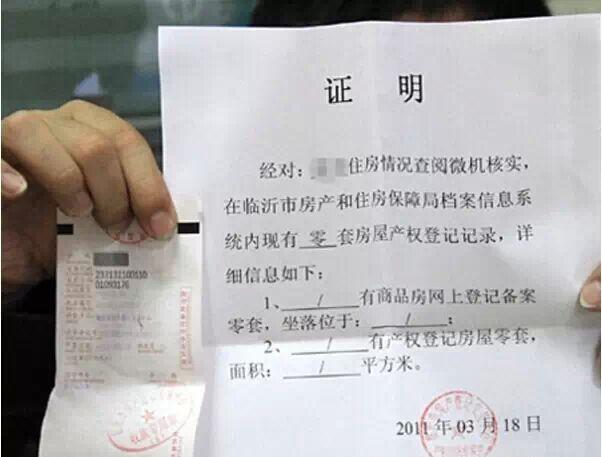 证 明
经对：住房情况查阅微机核实，
在临沂市房产和住房保障局档案信息系
统内现有 零 套房屋产权登记记录，详
细信息如下：
1、 / 有商品房网上登记备案
零套，坐落位于： / ；
2、 / 有产权登记房屋零套，
面积： / 平方米。
2011 年 03 月 18 日
237131100110
01093176